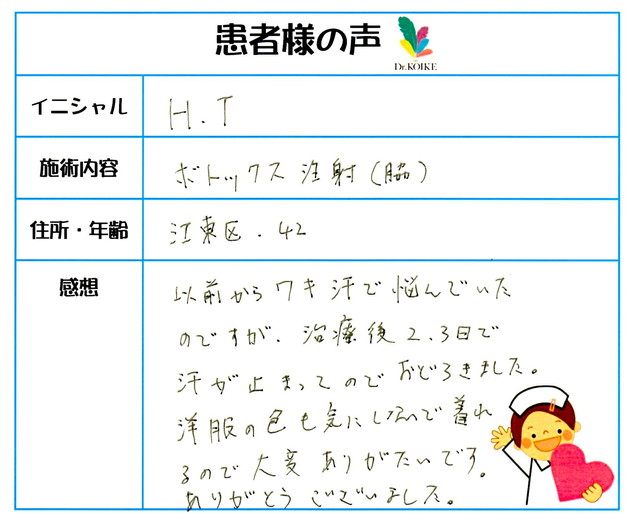 患者様の声
Dr.KOIKE
イニシャル
H.T
施術内容
ボトックス注射(脇)
住所・年齢
江東区.42
感想
以前からワキ汗で悩んでいた
のですが、治療後2.3日で
汗が止まってのでおどろきました。
洋服の色も気にしないで着れ
るので大変ありがたいです。
ありがとうございました。